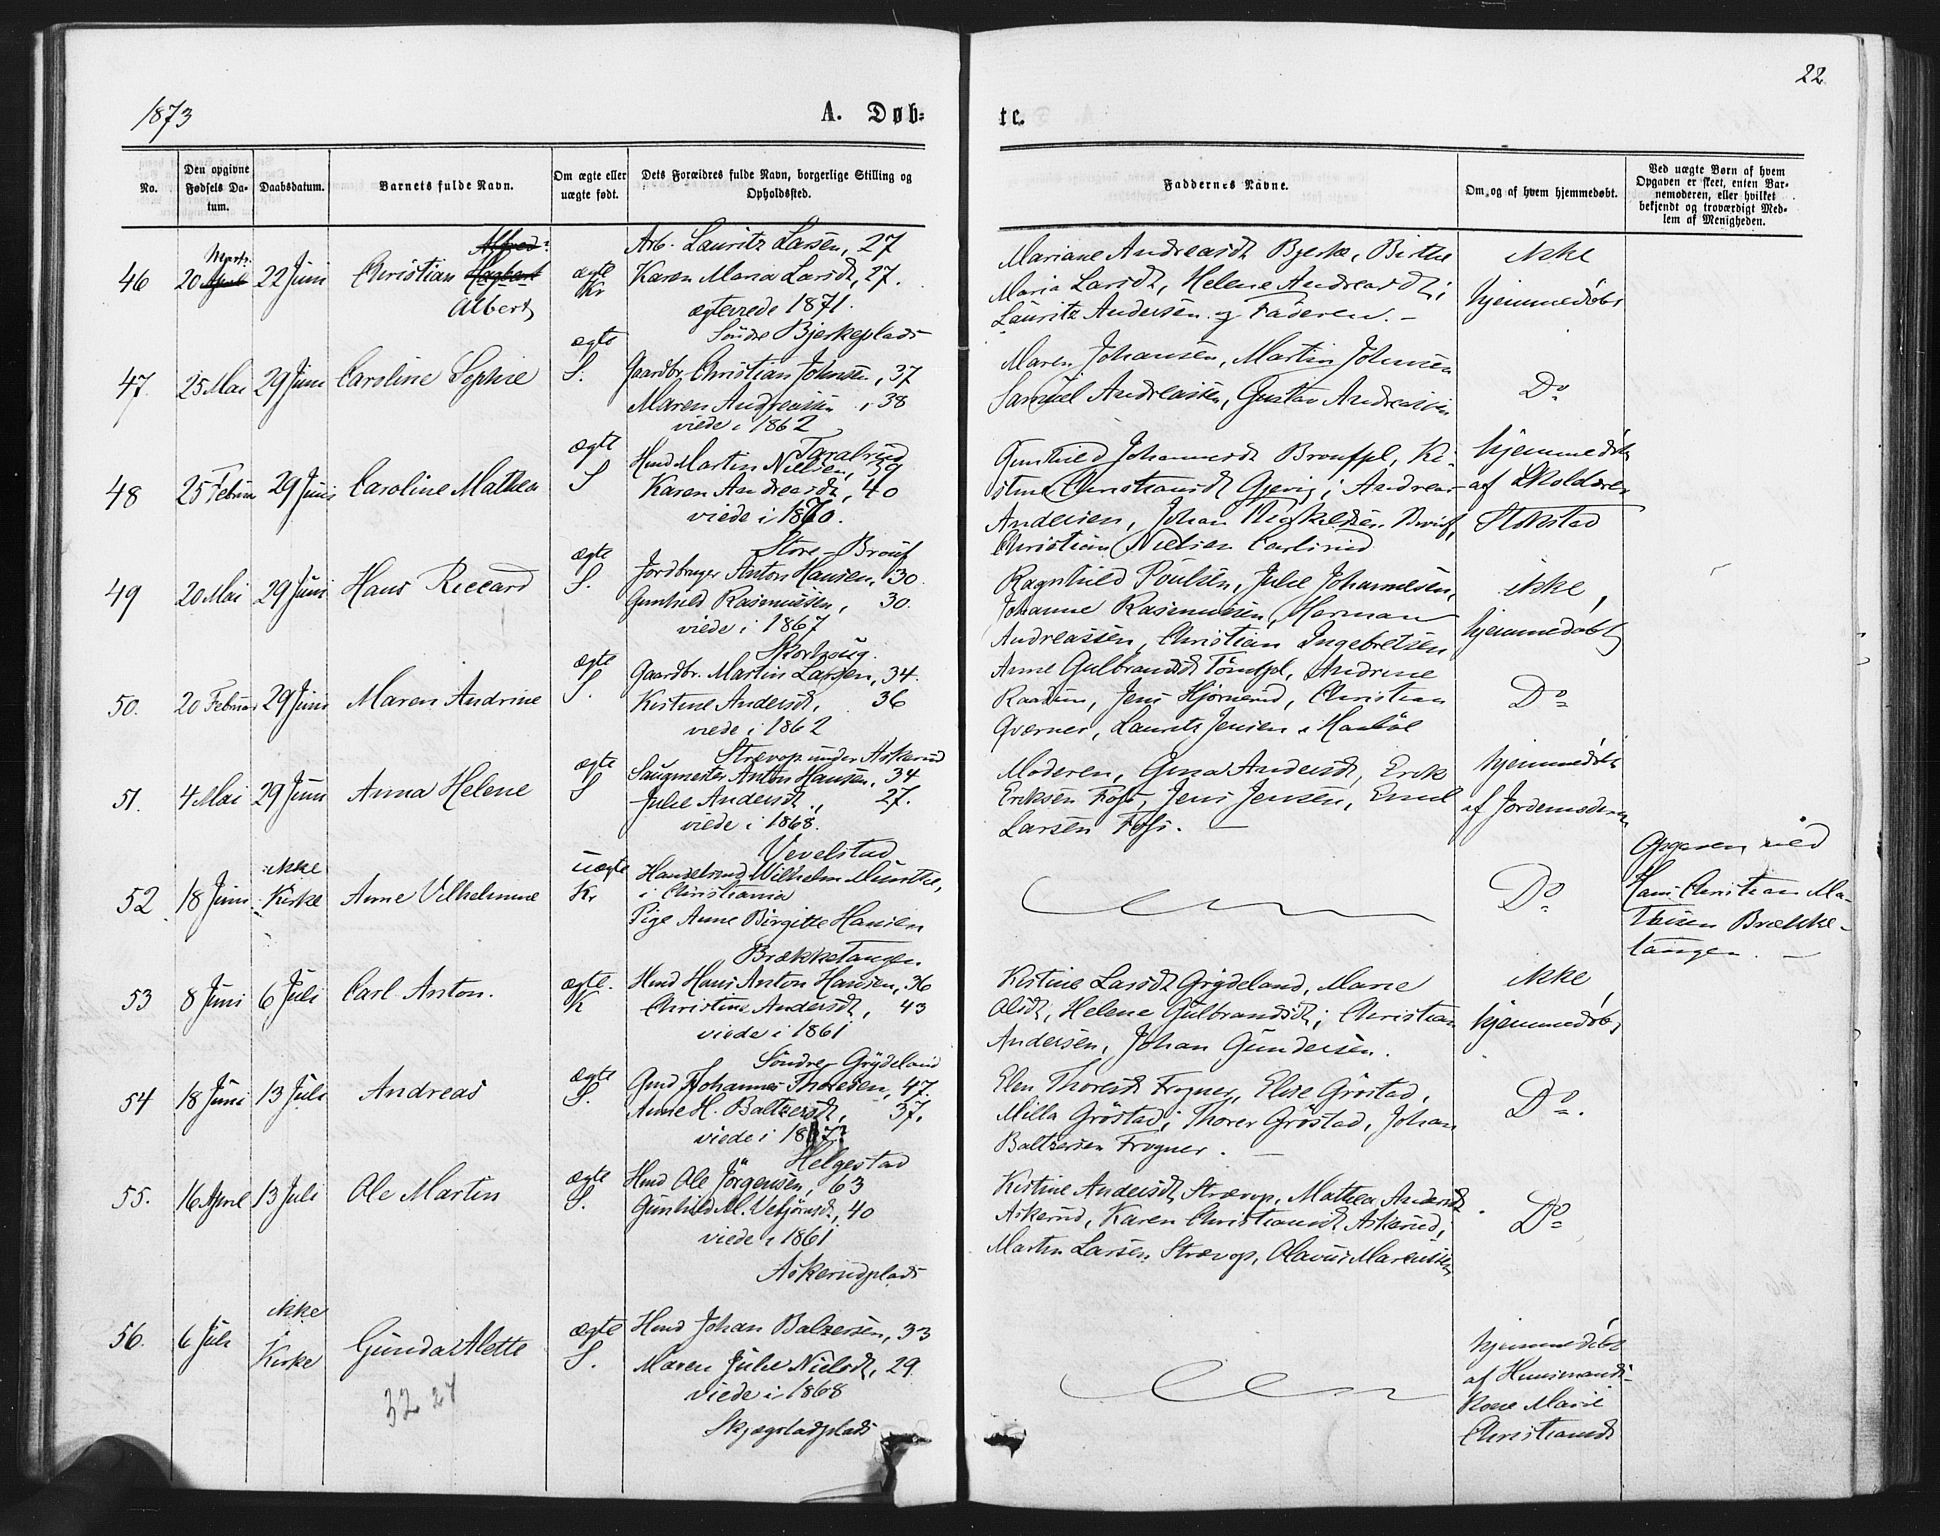 22.
1873
A. Døb-
te.
No.
Den opgivne Fødsels Datum.
Daabsdatum.
Barnets fulde Navn.
Om ægte eller uægte født.
Dets Forældres fulde Navn, borgerlige Stilling og Opholdssted.
Faddernes Navne.
Om, og af hvem hjemmedøbt.
Ved uægte Børn af hvem Opgaven er skeet, enten Barnemoderen, eller hvilket bekjendt og troværdigt Medlem af Menigheden.
46
20
22 Juni
Christian
Albert
ægte
Kr
Arb. Lauritz Larsen, 27
Karen Maria Larsdt, 27.
ægteviede 1871.
Søndre Bjerkeplads
Mariane Andreasdt Bjerke, Birthe
Maria Larsdt, Helene Andreasdt;
Lauritz Andersen og Faderen. -
ikke
hjemmedøbt
47.
25 Mai
29 Juni
Caroline Sophie
ægte
S.
Gaardbr. Christian Johnsen, 37
Maren Andreassen, 38
viede i 1862
Taralrud
Maren Johansen, Martin Johnsen
Samuel Andreassen, Gustav Andreassen
Do
48
25 Februar
29 Juni
Caroline Mathea
ægte
S
Hmd Martin Nielsen, 39
Karen Andreasdt, 40
viede i 1870.
Gunhild Johannesdt
Christiansdt Andreas
Andersen, Johan
Christian Nielsen Carlsrud
hjemmedøbt
af
49
20 Mai
29 Juni
Hans Riccard
ægte
S.
Jordbruger Anton Hansen, 30
Gunhild Rasmussen, 30.
viede i 1867
Skorhoug.
Ragnhild Poulsen, Julie Johannesen,
Johanne Rasmussen, Herman
Andreassen, Christian Ingebretsen
ikke
hjemmedøbt
50.
20 Februar
29 Juni
Maren Andrine
ægte
S.
Gaardbr. Martin Larsen, 34.
Kistine Andersdt, 36
viede i 1862
Strævop under Askerud
Anne Gulbrandsdt Andrine
Raadum, Jens Hjørnerud, Christian
Qværner, Laurits Jensen
Do
51.
4 Mai
29 Juni
Anna Helene
ægte
S
Saugmester Anton Hansen, 34
Julie Andersdt, 27.
viede i 1868.
Vevelstad
Moderen, Gina Andersdt, Erik
Eriksen Foss, Jens Jensen, Emil
Larsen Foss. -
hjemmedøbt
af Jordemoderen
52
18 Juni
ikke
Kirke
Anne Vilhelmine
uægte
Kr
Handelsmd Wilhelm Munthe,
i Christiania
Pige Anne Birgitte Hansen
Brækketangen.
Do
Opgaven ved
Hans Christian Ma-
thisen Brække-
tangen. -
53
8 Juni
6 Juli
Carl Anton.
ægte.
K
Hmd Hans Anton Hansen, 36
Christine Andersdt, 43
viede i 1861
Søndre Grydeland
Kistine Larsdt Grydeland, Marie
Olsdt, Helene Gulbrandsdt; Christian
Andersen, Johan Gundersen.
ikke
hjemmedøbt
54
18 Juni
13 Juli
Andreas
ægte
S.
Gmd Johannes Thoresen, 47.
Anne H. Baltzersdt, 37.
viede i
Helgestad
Elen Thoresdt Frogner, Elise Grøstad,
Milla Grøstad; Thorer Grøstad, Johan
Baltzersen Frogner. -
Do.
55.
16 April
13 Juli
Ole Martin
ægte
S.
Hmd Ole Jörgensen, 63
Gunhild M. Vebjörnsdt, 40
viede i 1861
Askerudplads
Kistine Andersdt Strævop, Mathea Andersdt
Askerud, Karen Christiansdt Askerud;
Martin Larsen Strævop, Olavus Marenissen
Do
56.
6 Juli
ikke
Kirke
Gunda Alette
ægte
S.
Hmd Johan Balzersen, 33
Maren Julie Nielsdt, 29.
viede i 1868
Skjægstadplads
hjemmedøbt
af Huusmands-
Kone Marie
Christiansdt
32 24